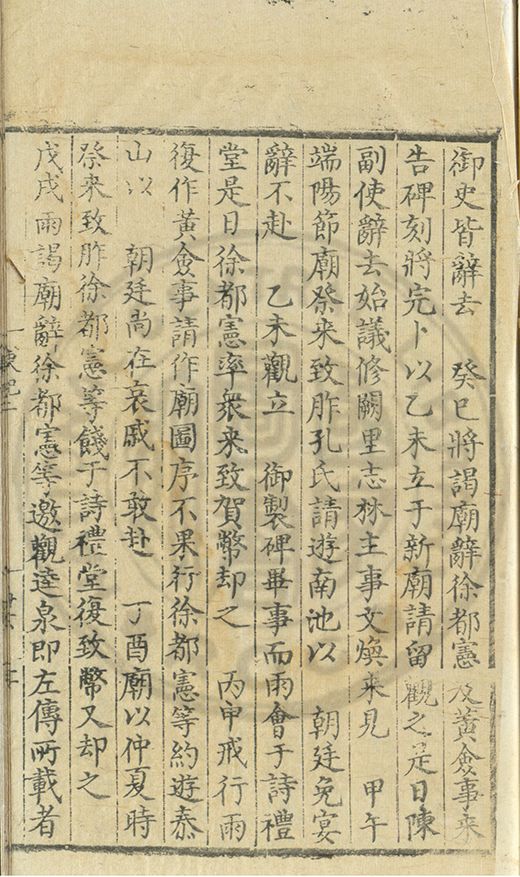 御史皆辭去　癸巳將謁廟辭徐都憲及黃僉事來
告碑刻將完卜以乙未立于新廟請留觀之是日陳
副使辭去始議修闕里志林主事文煥來見　甲午
端陽節廟祭來致胙孔氏請遊南池以　朝廷免宴
辭不赴　乙未觀立　御製碑畢事而雨會于詩禮
堂是日徐都憲率衆來致賀幣却之　丙申戒行雨
復作黃僉事請作廟圖序不果行徐都憲等約遊泰
山以　朝廷尚在哀戚不敢赴　丁酉廟以仲夏時
祭来致胙徐都憲等餞于詩禮堂復致幣又却之
戊戌雨謁廟辭徐都憲等邀觀逵泉即左傳所載者